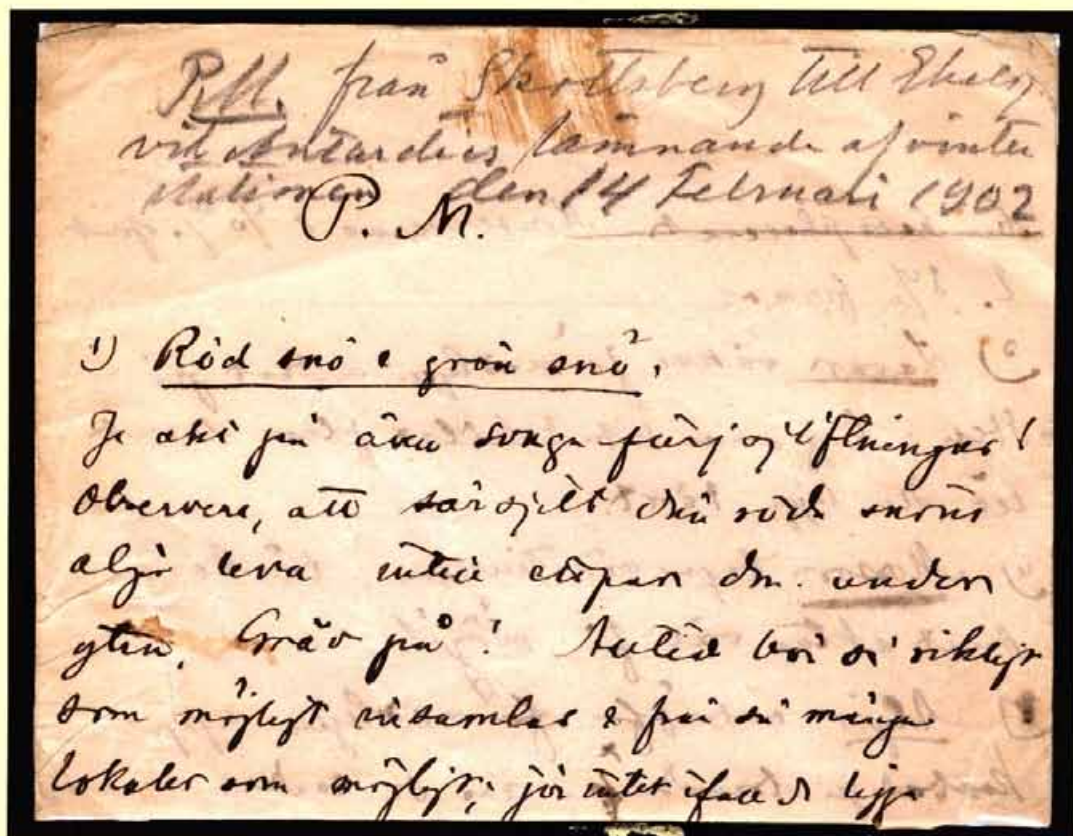 P.M. från Skottsberg till Ekelöf
vid Antarctics lämnande af vinter
stationen den 14 Februari 1902
P. M.
1) Röd snö & grön snö.
Ge akt på även svaga färgskiftningar!
Observera, att särskilt den röda snöns
alger leva intill dm. under
ytan. Gräv på! Alltid bör så rikligt
som möjligt insamlas & från så många
lokaler som möjligt; gör intet ligga